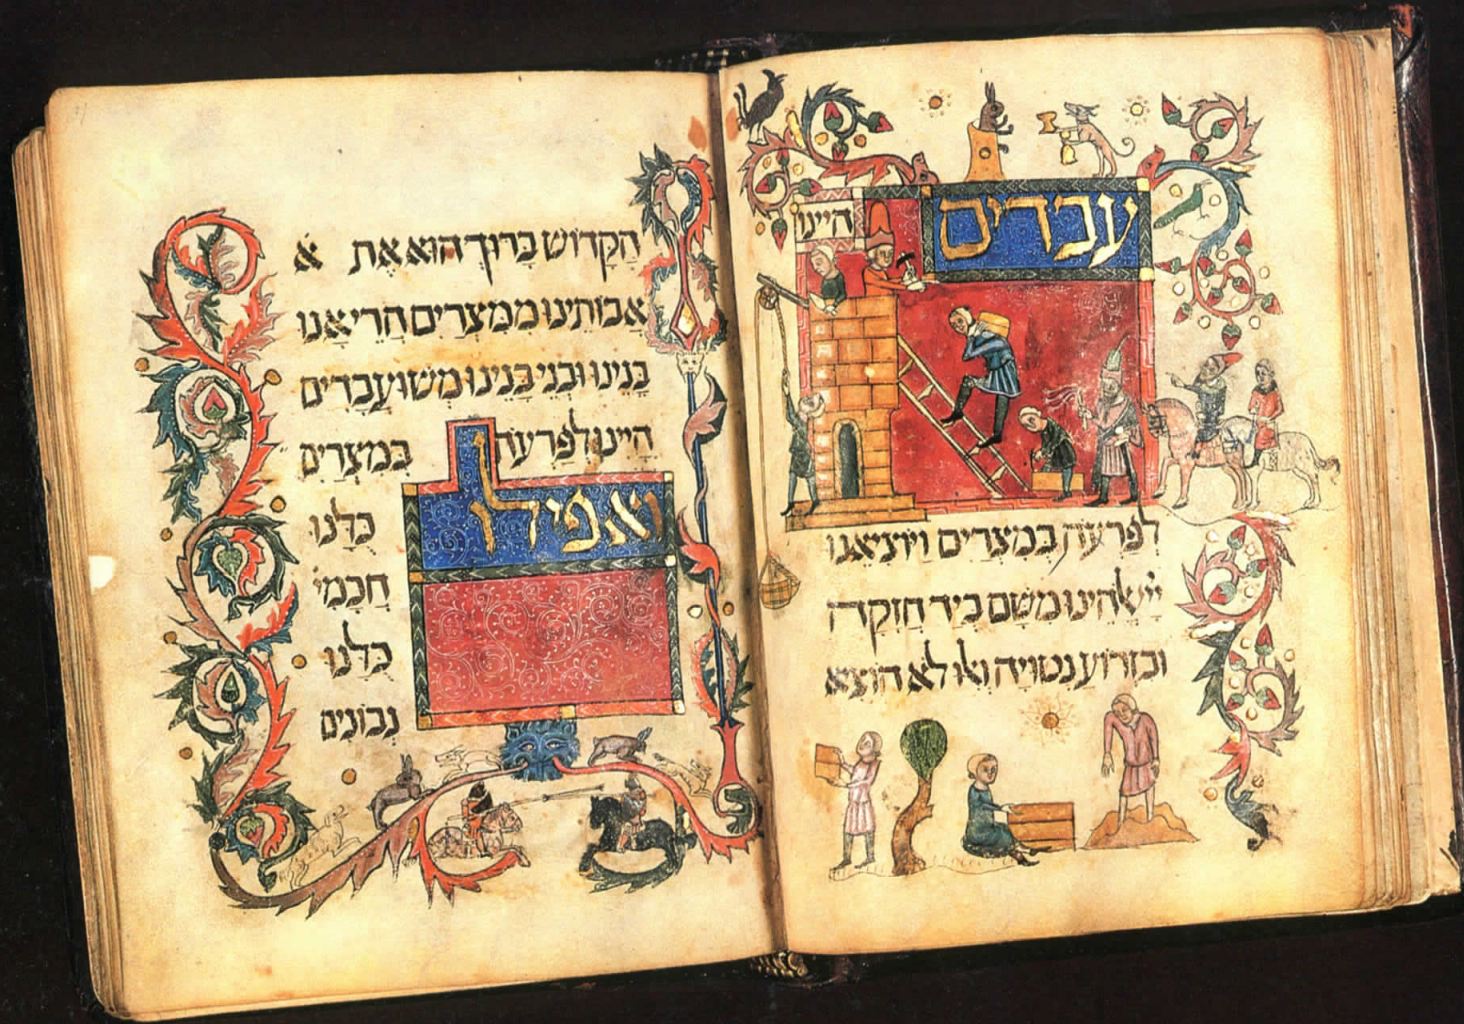 עבדים היינו
לפרעה במצרים ויוציאנו
יי אלהינו משם ביד חזקה
ובזרוע נטויה ואלו לא הוציא
הקדוש ברוך הוא את א
אבותינו ממצרים הרי אנו
בנינו ובני בנינו משועבדים
היינו לפרעה במצרים
ואפילו כלנו
חכמי
כלנו
נבונים